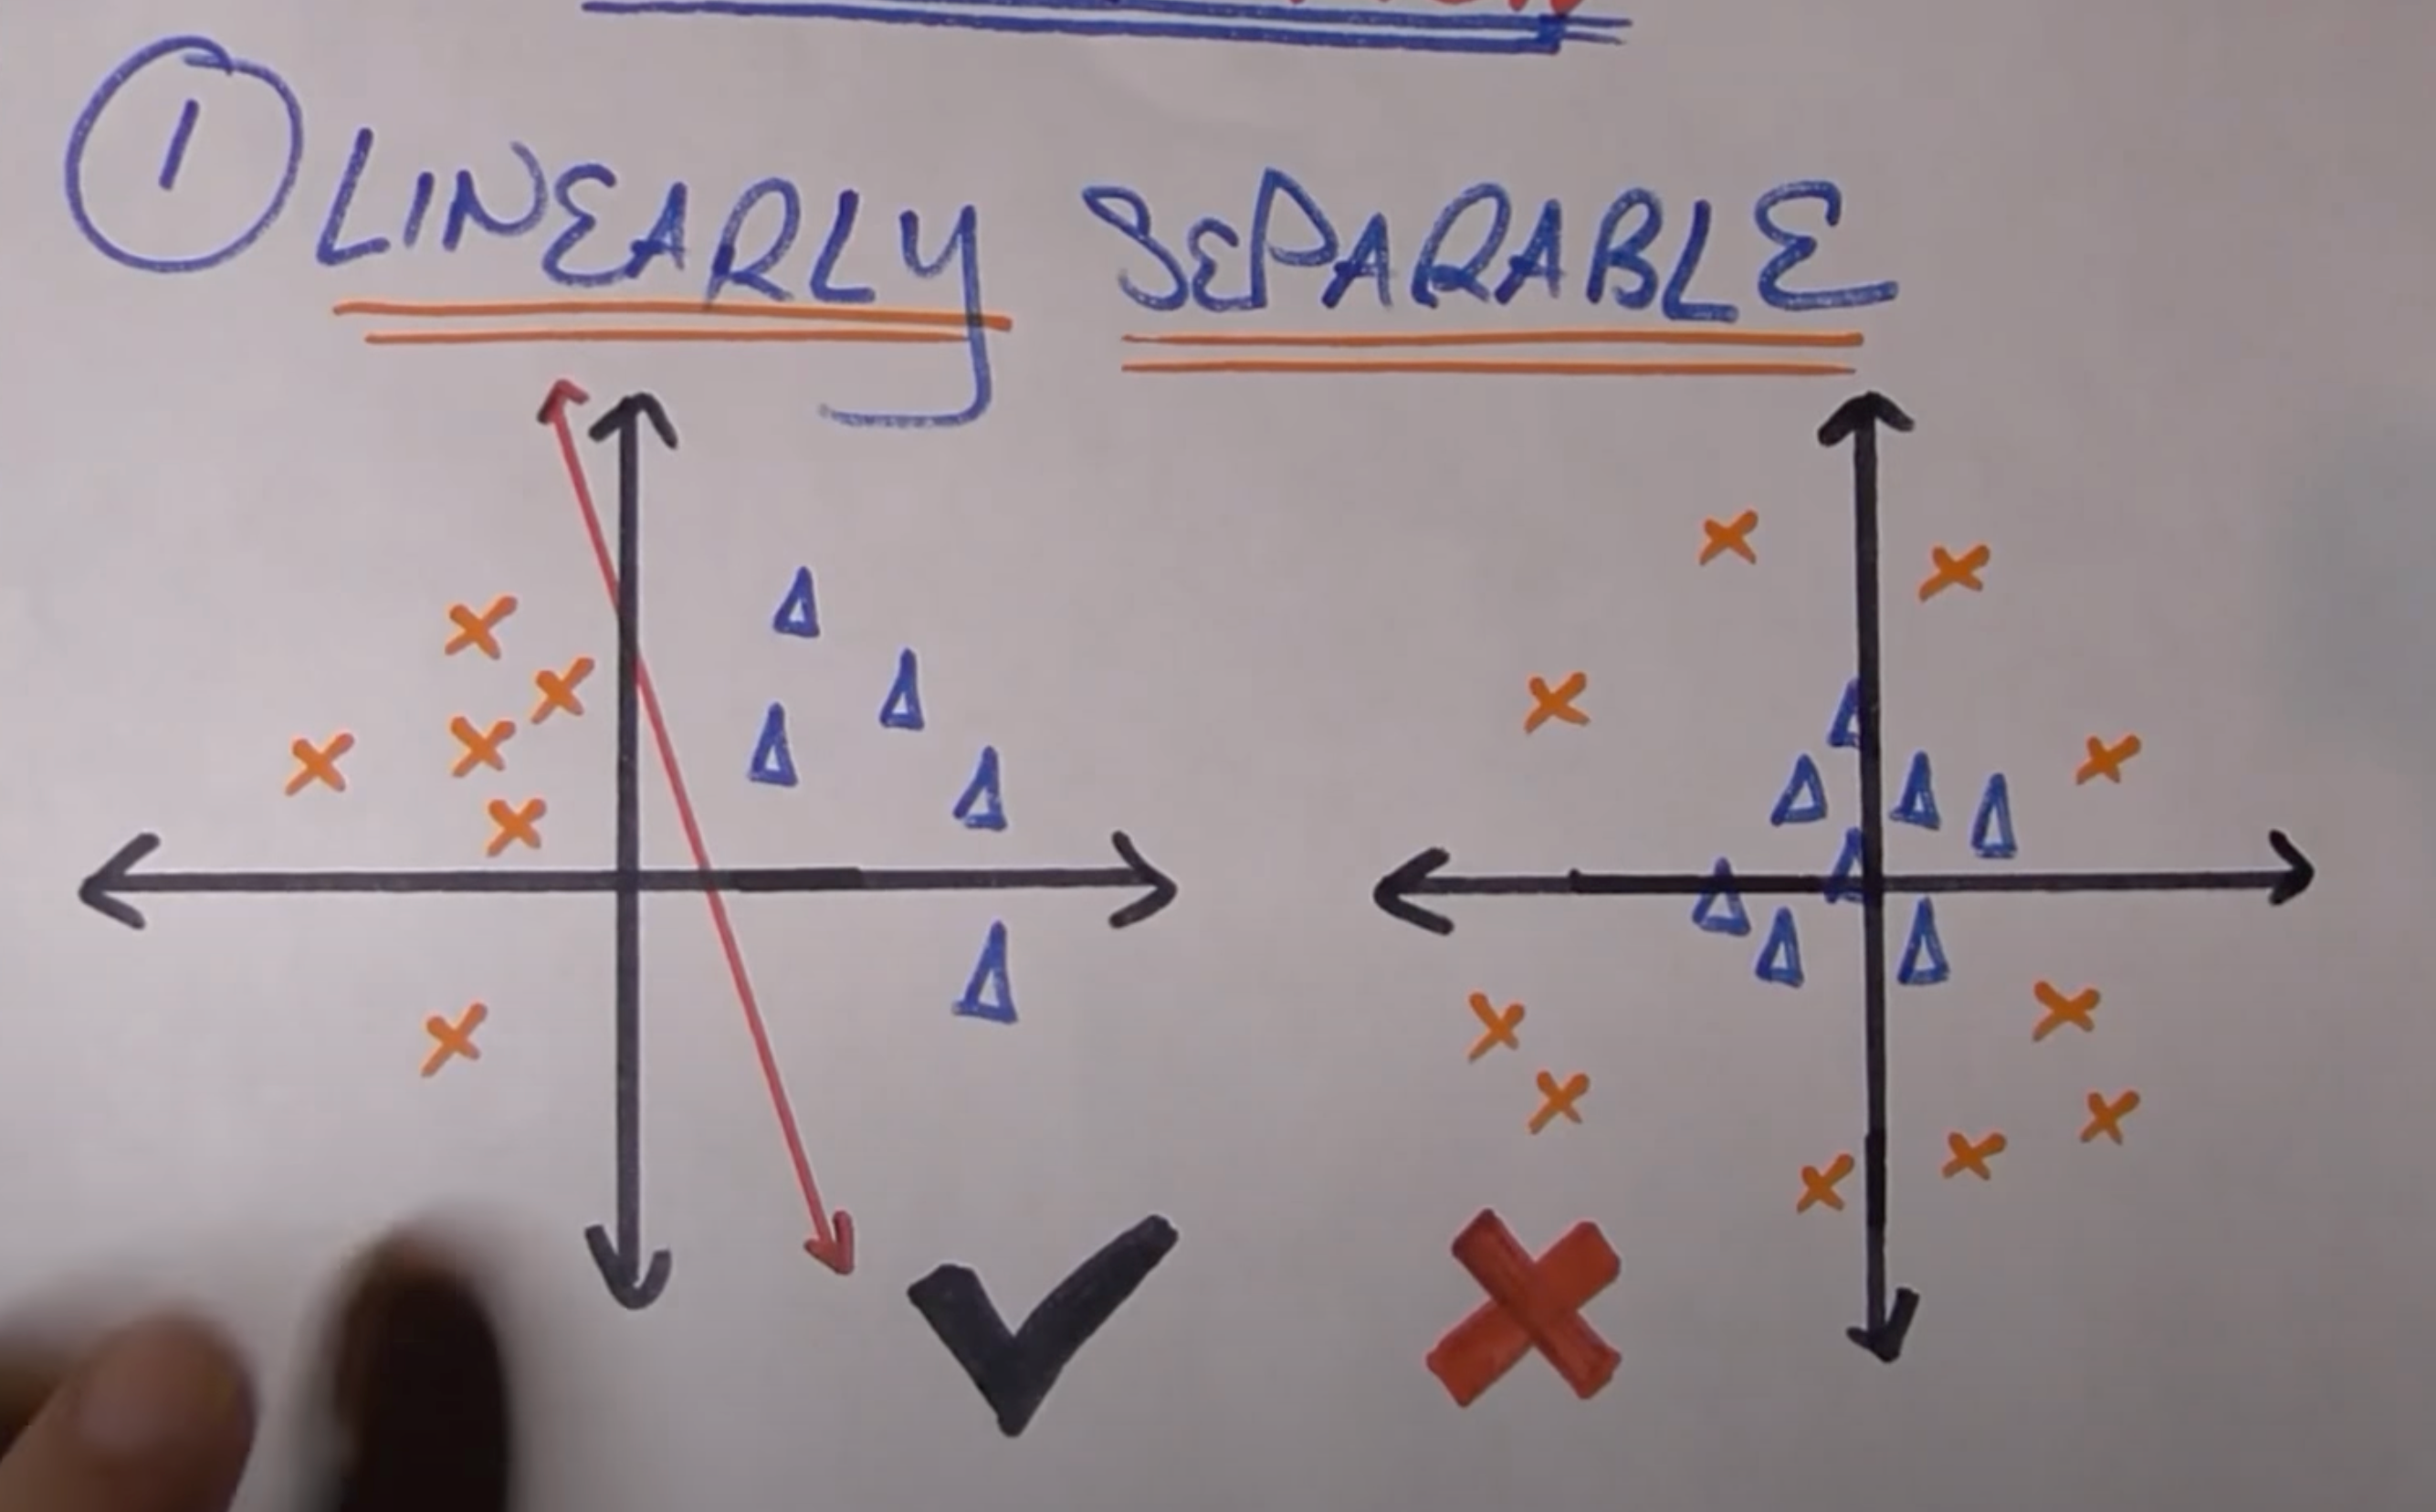 1 LINEARLY SEPARABLE